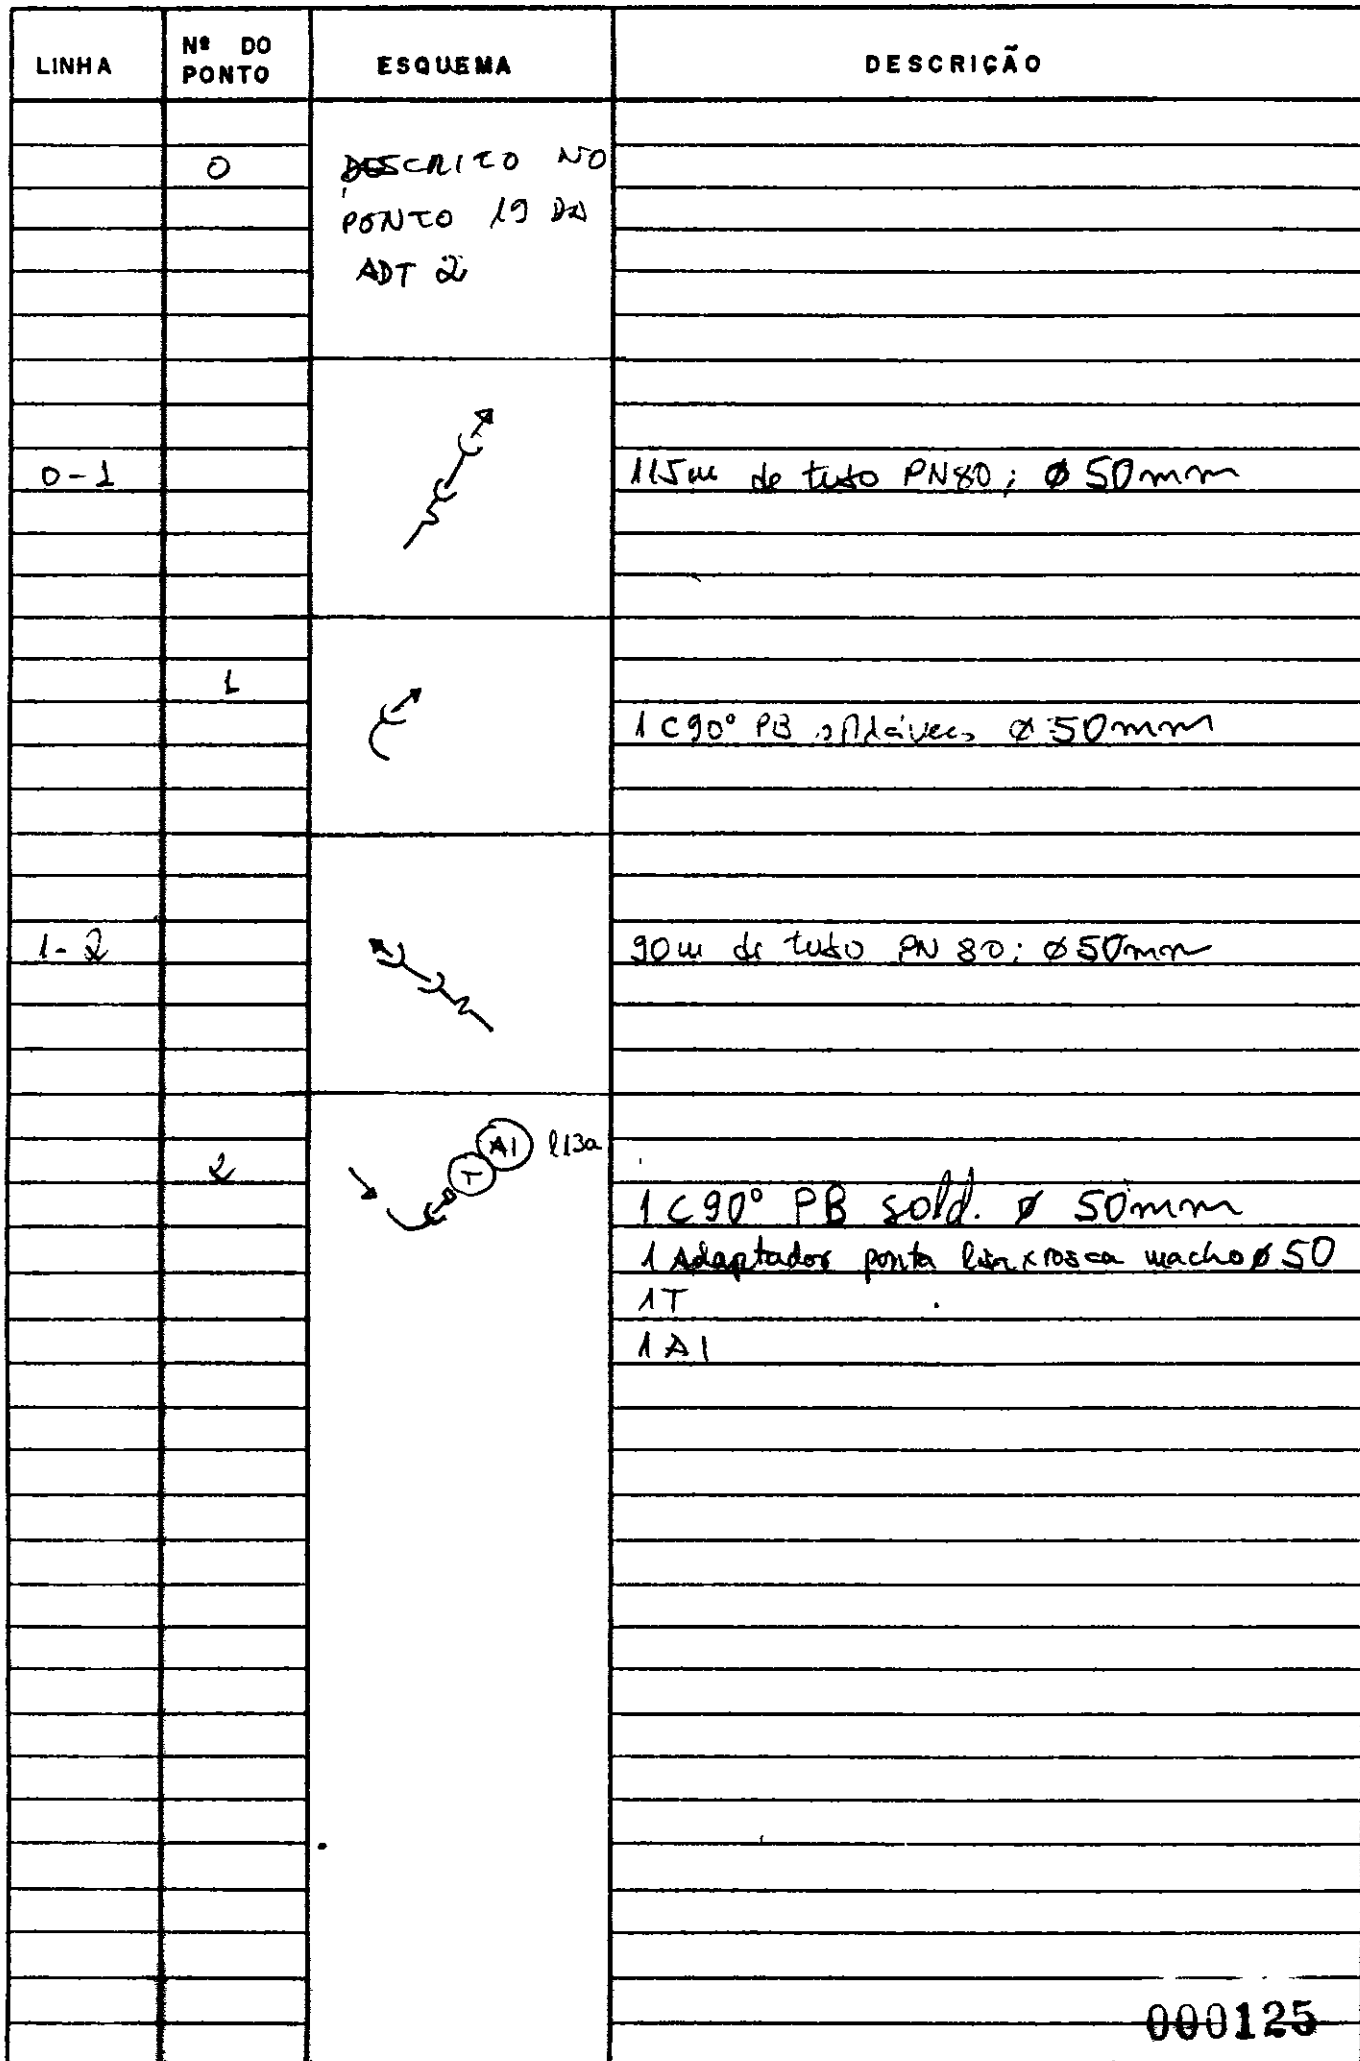 LINHA Nº DO PONTO ESQUEMA DESCRIÇÃO
0 DESCRITO NO
PONTO 19 DA
ADT 2
0-1 115m de tubo PN80; ø 50mm
1
1 C90° PB soldável, ø 50mm
1-2 90m de tubo PN 80; ø 50mm
AI l13a
2 T
1 C90° PB sold. ø 50mm
1 Adaptador ponta lisa x rosca macho ø 50
1T
1 AI
000125